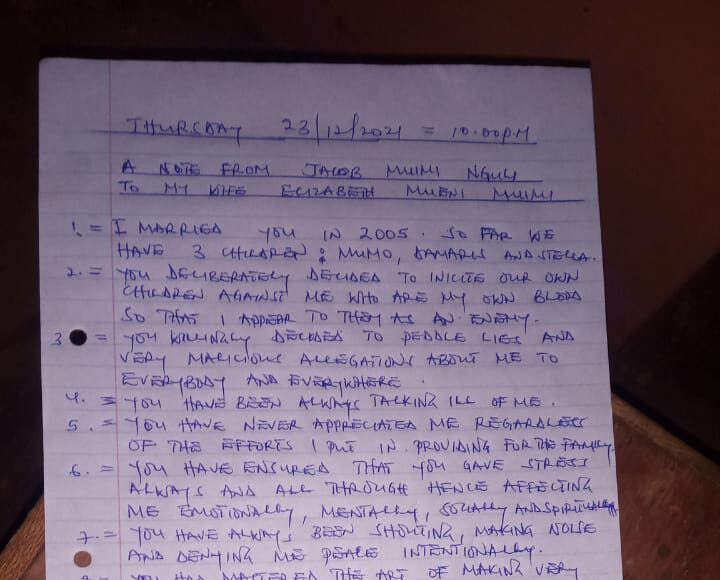 THURSDAY 23/12/2021 = 10.00PM
A NOTE FROM JACOB MUIMI NGULI
TO MY WIFE ELIZABETH MUENI MUIMI
1. = I MARRIED YOU IN 2005. SO FAR WE
HAVE 3 CHILDREN; MUMO, DAMARIS AND STELLA.
2. = YOU DELIBERATELY DECIDED TO INICITE OUR OWN
CHILDREN AGAINST ME WHO ARE MY OWN BLOOD
SO THAT I APPEAR TO THEM AS AN ENEMY.
3 = YOU WILLINGLY DECIDED TO PEDDLE LIES AND
VERY MALICIOUS ALLEGATIONS ABOUT ME TO
EVERYBODY AND EVERYWHERE.
4. = YOU HAVE BEEN ALWAYS TALKING ILL OF ME.
5. = YOU HAVE NEVER APPRECIATED ME REGARDLESS
OF THE EFFORTS I PUT IN PROVIDING FOR THE FAMILY.
6. = YOU HAVE ENSURED THAT YOU GAVE STRESS
ALWAYS AND ALL THROUGH HENCE AFFECTING
ME EMOTIONALLY, MENTALLY, SOCIALLY AND SPIRITUALLY.
7. = YOU HAVE ALWAYS BEEN SHOUTING, MAKING NOISE
AND DENYING ME PEACE INTENTIONALLY.
8. = YOU HAD MASTERED THE ART OF MAKING VERY